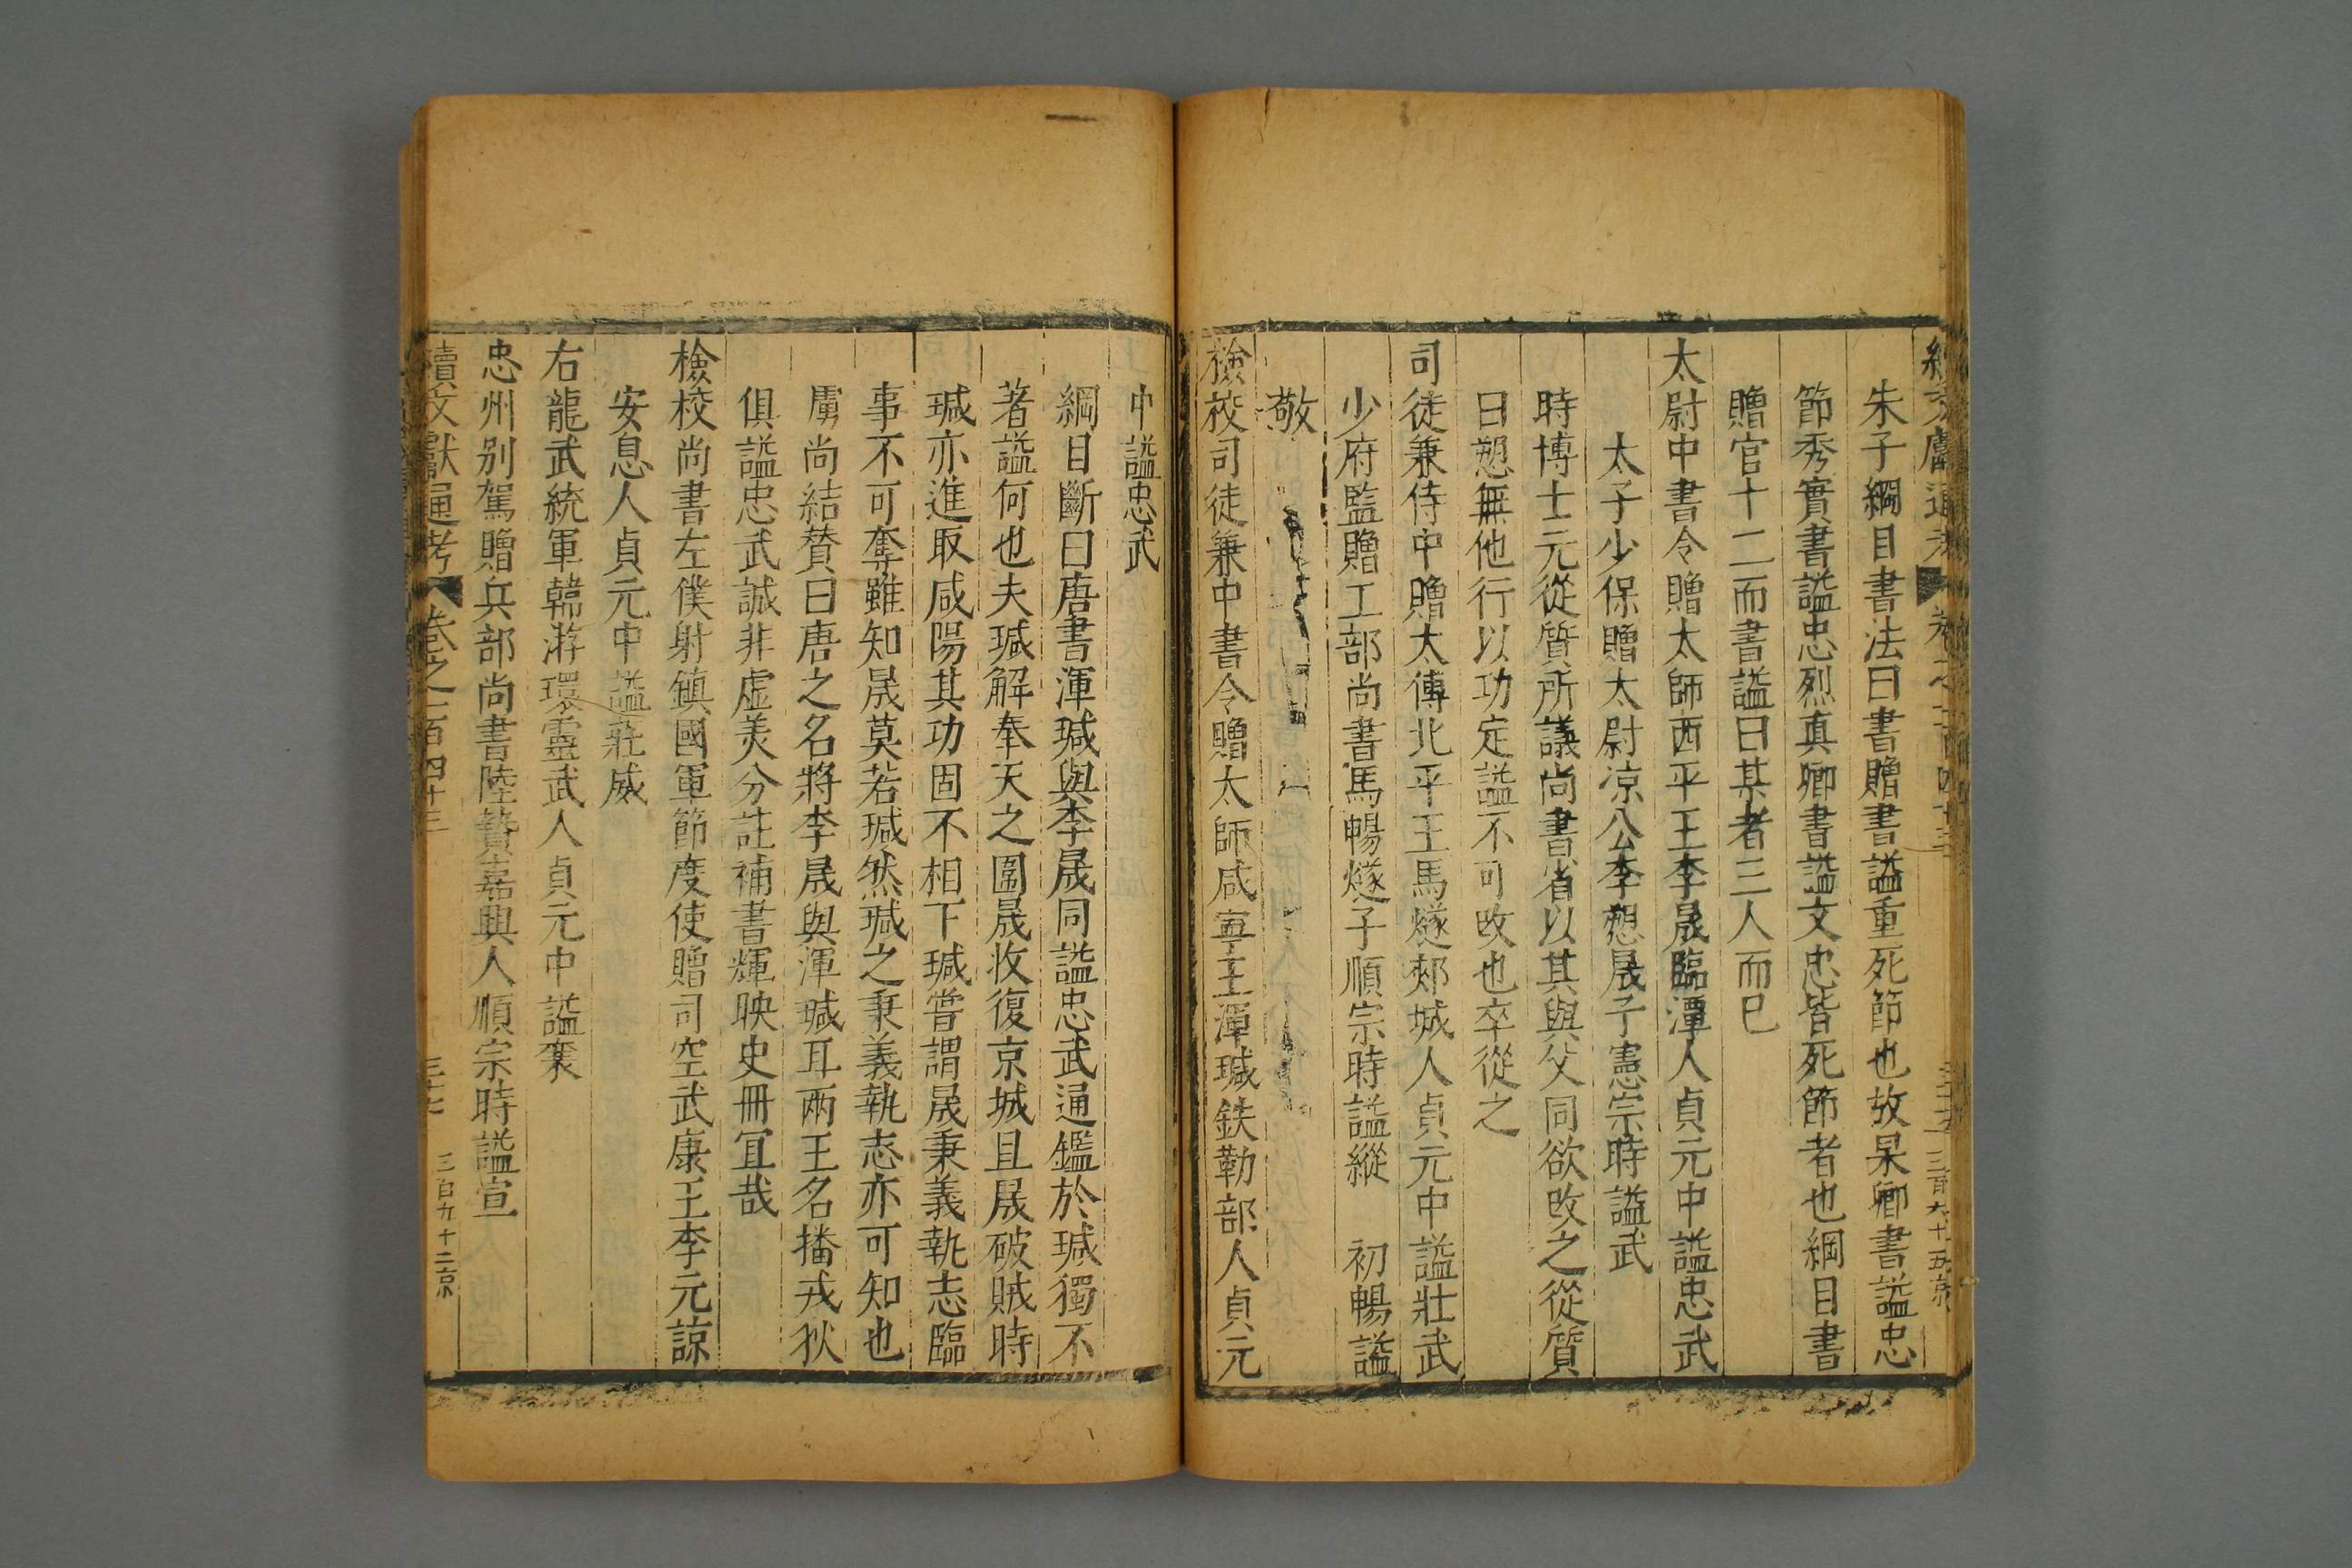 續文獻通考 卷之一百四十三 三百九十五京
朱子綱目書法曰書贈書謚重死節也故杲卿書謚忠
節秀實書謚忠烈真卿書謚文忠皆死節者也綱目書
贈官十二而書謚曰某者三人而已
太尉中書令贈太師西平王李晟臨潭人貞元中謚忠武
太子少保贈太尉凉公李愬晟子憲宗時謚武
時博士元從質所議尚書省以其與父同欲改之從質
曰愬無他行以功定謚不可改也卒從之
司徒兼侍中贈太傅北平王馬燧郟城人貞元中謚壯武
少府監贈工部尚書馬暢燧子順宗時謚縱 初暢謚
敬
檢校司徒兼中書令贈太師咸寧王渾瑊鉄勒部人貞元
中謚忠武
綱目斷曰唐書渾瑊與李晟同謚忠武通鑑於瑊獨不
著謚何也夫瑊解奉天之圍晟收復京城且晟破賊時
瑊亦進取咸陽其功固不相下瑊嘗謂晟秉義執志臨
事不可奪雖知晟莫若瑊然瑊之秉義執志亦可知也
虜尚結贊曰唐之名將李晟與渾瑊耳兩王名播戎狄
俱謚忠武誠非虛羙分註補書輝映史冊宜哉
檢校尚書左僕射鎮國軍節度使贈司空武康王李元諒
安息人貞元中謚莊威
右龍武統軍韓游環靈武人貞元中謚襄
忠州别駕贈兵部尚書陸贄嘉興人順宗時謚宣
續文獻通考 卷之一百四十三 三十七 三百九十二京